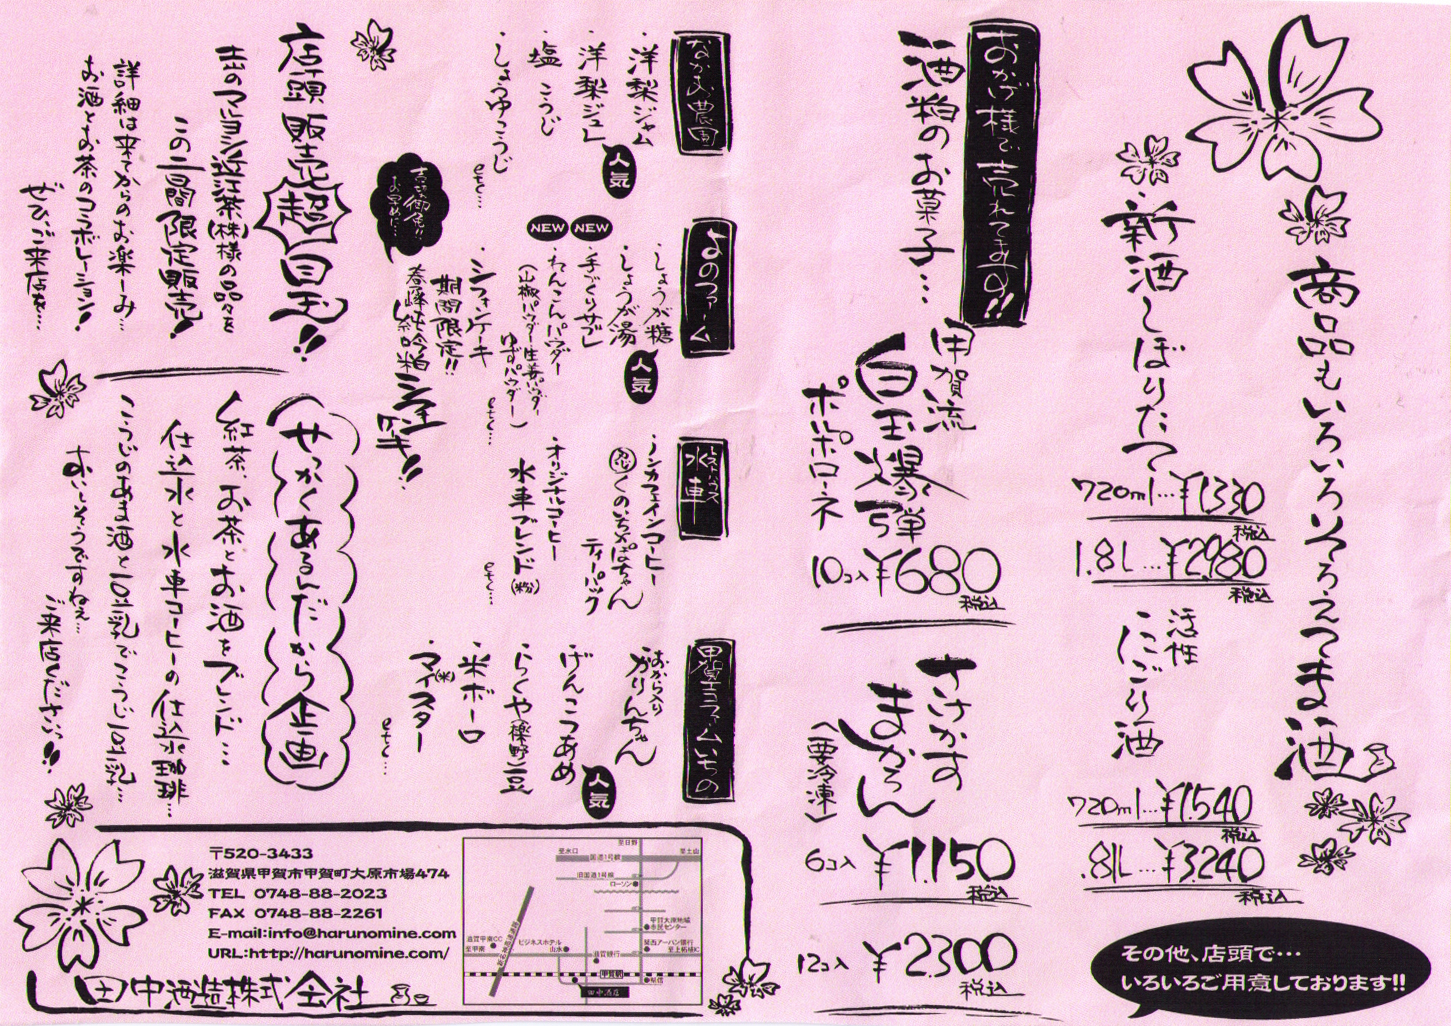 商品もいろいろいろいろそろえてま酒
新酒しぼりたて
720ml…¥1330
税込
1.8L…¥2980
税込
活性
にごり酒
720ml…¥1,540
税込
1.8L…¥3,240
税込
その他、店頭で…
いろいろご用意しております!!
おかげ様で売れてますの!!
酒粕のお菓子…
甲賀流
白玉爆弾
ポルポローネ
10コ入 ¥680
税込
さけかす
まかろん
(要冷凍)
6コ入 ¥1,150
税込
12コ入 ¥2,300
税込
なかお農園
・洋梨ジャム
・洋梨ジュレ
人気
・塩こうじ
・しょうゆこうじ
etc…
よのファーム
・しょうが糖
・しょうが湯
人気
NEW
・手づくりサブレ
NEW
・れんこんパウダー
(山椒パウダー生姜パウダー
ゆずパウダー)
etc…
・シフォンケーキ
期間限定!!
春峰純吟粕
シフォンケーキ!!
お早めに…
レストハウス
水車
・ノンカフェインコーヒー
・忍くのいちかぱちゃん
ティーパック
・オリジナルコーヒー
水車ブレンド(粉)
etc…
甲賀エコファームいちの
・おから入り
かりんちゃん
・げんこつあめ
人気
・らくや(櫟野)豆
・米ボーロ
・マイ(米)スター
etc…
店頭販売超目玉!!
土山のマルヨシ近江茶(株)様の品々を
この二日間限定販売!
詳細は来てからのお楽しみ…
お酒とお茶のコラボレーション!
ぜひご来店を…
せっかくあるんだから企画
紅茶、お茶とお酒をブレンド…
仕込水と水車コーヒーの仕込水珈琲…
こうじのあま酒と豆乳でこうじ豆乳…
おいしそうですねぇ…
ご来店くださいっ!!
〒520-3433
滋賀県甲賀市甲賀町大原市場474
TEL 0748-88-2023
FAX 0748-88-2261
E-mail:info@harunomine.com
URL:http://harunomine.com/
田中酒造株式会社
至日野
至水口
国道1号線
至土山
旧国道1号線
ローソン
甲賀大原地域
市民センター
滋賀甲南CC
至甲南
ビジネスホテル
山水
滋賀銀行
関西アーバン銀行
至上柘植IC
甲賀駅
田中酒店